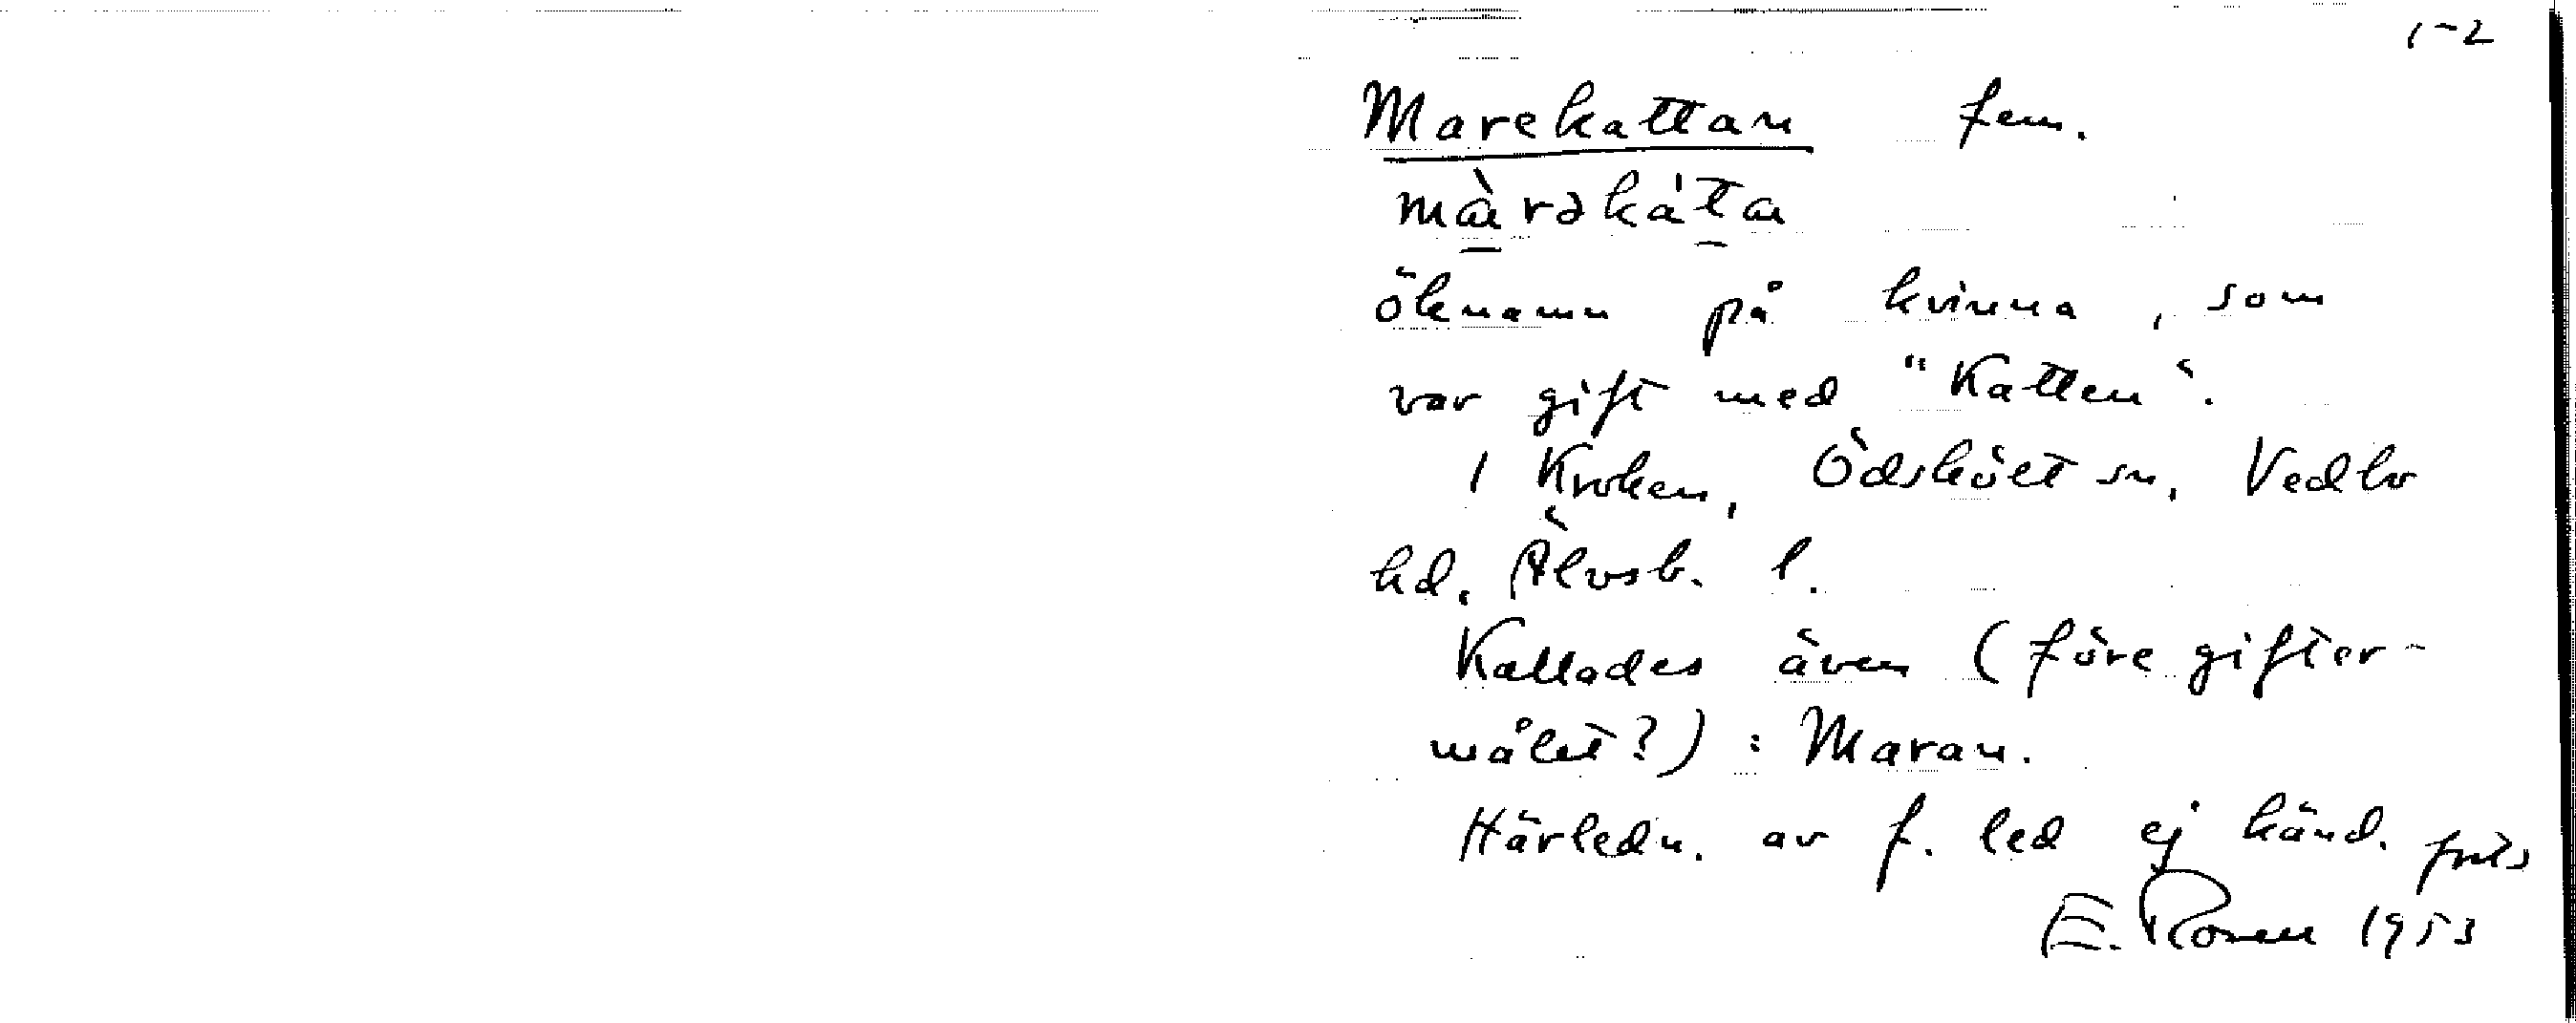 1-2
Marekattan fem.
màrəkáta
öknamn på kvinna, som
var gift med "Katten".
I Kroken, Ödskölt sn, Vedbo
hd. Älvsb. l.
Kallades även (före gifter-
målet?): Maran.
Härledn. av f. led ej känd.
E. Rosen 1953